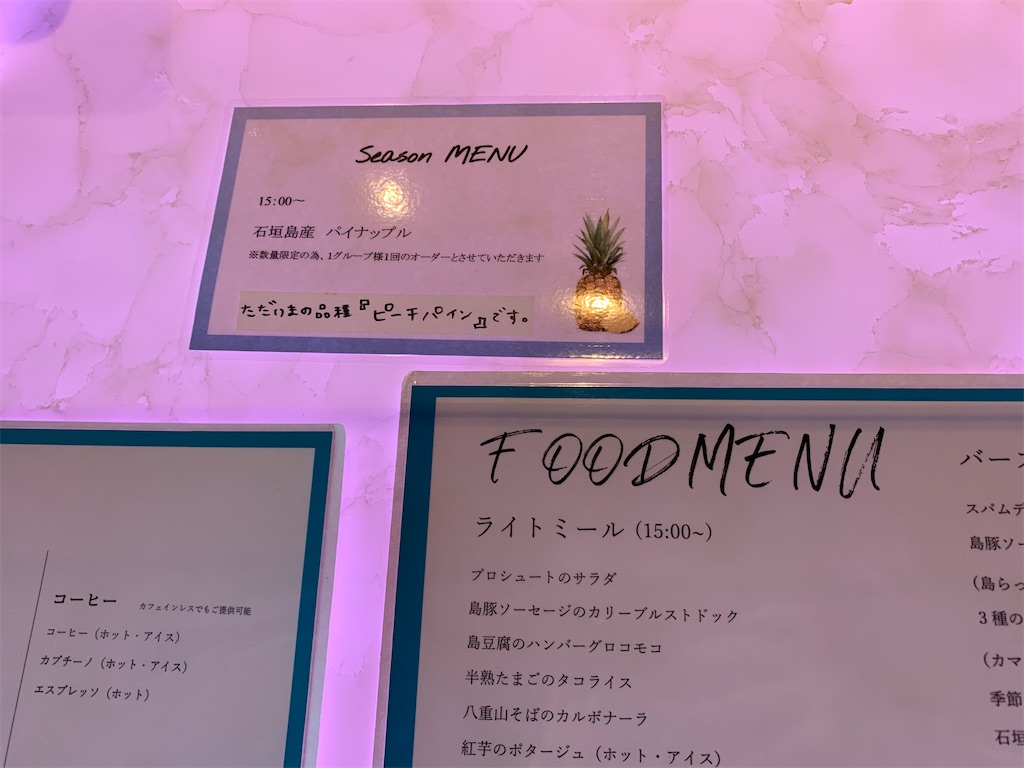 Season MENU
15:00~
石垣島産 パイナップル
※数量限定の為、1グループ様1回のオーダーとさせていただきます
ただいまの品種『ピーチパイン』です。
コーヒー カフェインレスでもご提供可能
コーヒー（ホット・アイス）
カプチーノ（ホット・アイス）
エスプレッソ（ホット）
FOODMENU
ライトミール（15:00~）
プロシュートのサラダ
島豚ソーセージのカリーブルストドック
島豆腐のハンバーグロコモコ
半熟たまごのタコライス
八重山そばのカルボナーラ
紅芋のポタージュ（ホット・アイス）
バー
スパム
島豚ソー
（島らっ
3種の
（カマ
季節
石垣